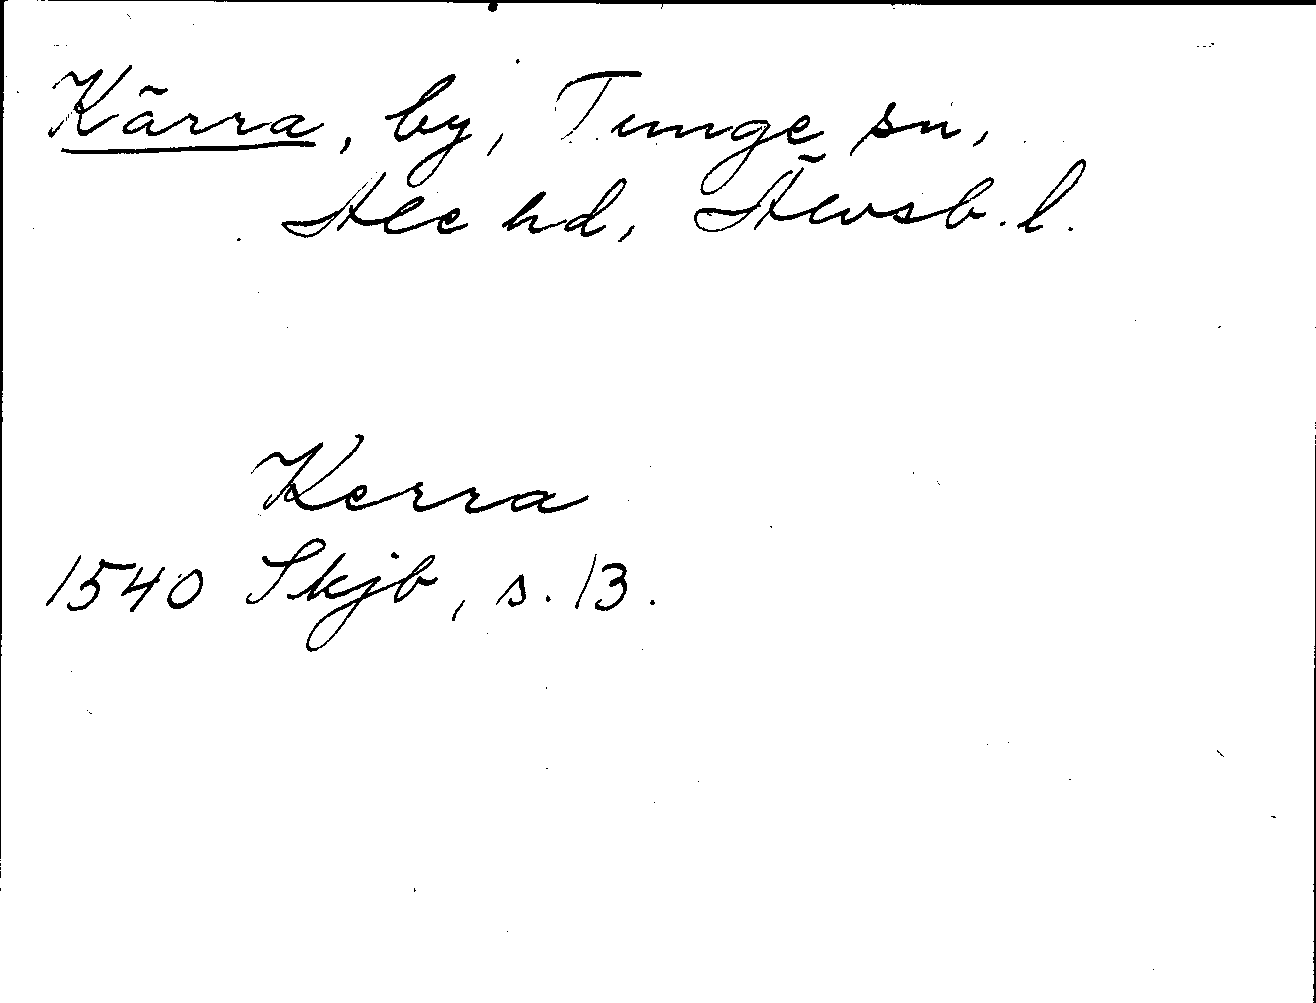 Kärra, by, Tunge sn,
Ale hd, Älvsb. l.
Kerra
1540 Skjb, s. 13.